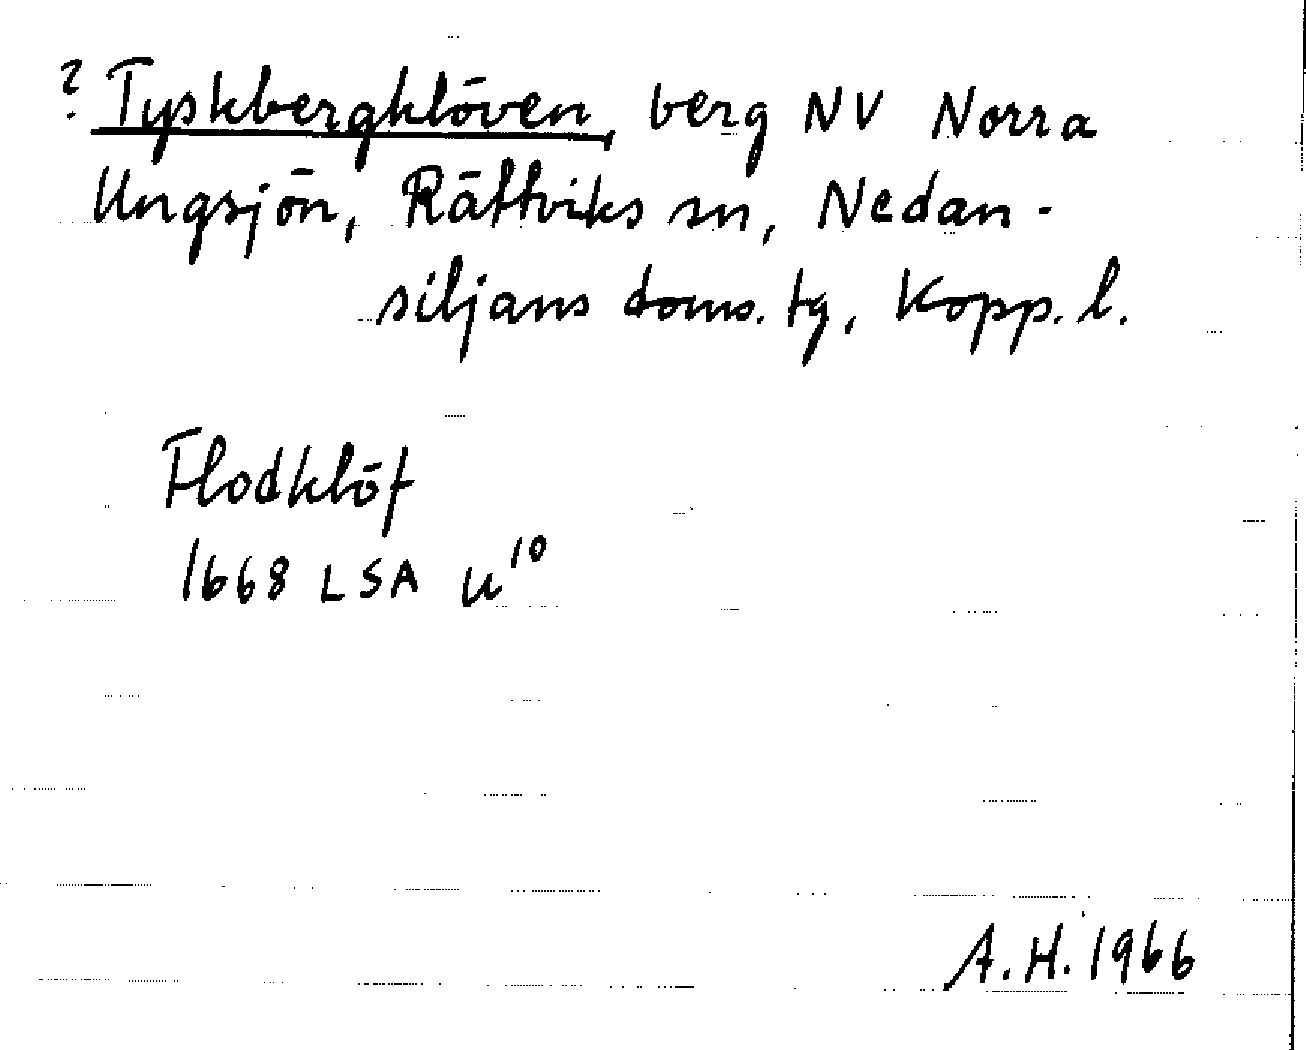 ? Tyskbergklöven, berg NV Norra
Ungsjön, Rättviks sn, Nedan-
siljans doms. tg, Kopp. l.
Flodklöf
1668 LSA U¹⁰
A.H. 1966